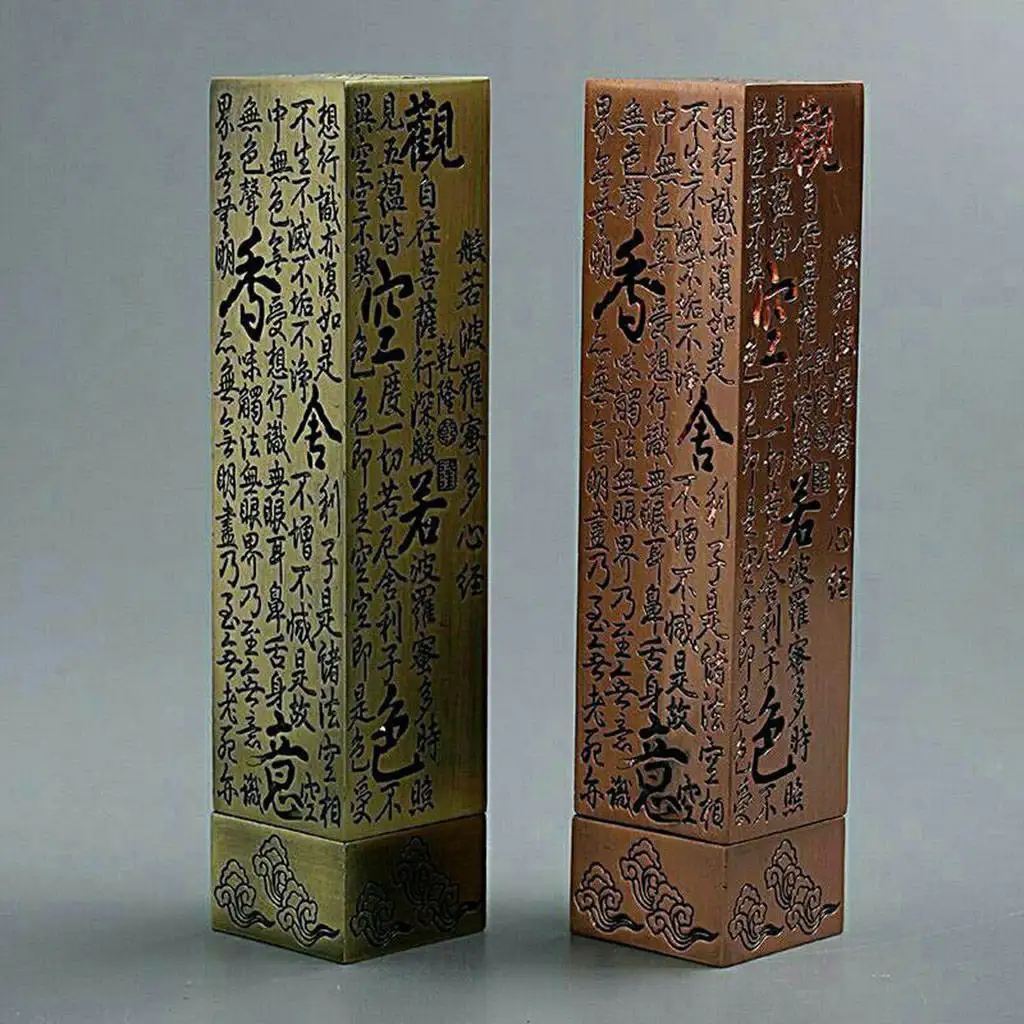 般若波羅蜜多心経
乾隆
觀自在菩薩行深般若波羅蜜多時照
見五蘊皆空度一切苦厄舍利子色不
異空空不異色色即是空空即是色受
想行識亦復如是舍利子是諸法空相
不生不滅不垢不淨不增不減是故空
中無色無受想行識無眼耳鼻舌身意
無色聲香味觸法無眼界乃至無意識
界無無明亦無無明盡乃至無老死亦
般若波羅蜜多心経
乾隆
觀自在菩薩行深般若波羅蜜多時照
見五蘊皆空度一切苦厄舍利子色不
異空空不異色色即是空空即是色受
想行識亦復如是舍利子是諸法空相
不生不滅不垢不淨不增不減是故空
中無色無受想行識無眼耳鼻舌身意
無色聲香味觸法無眼界乃至無意識
界無無明亦無無明盡乃至無老死亦